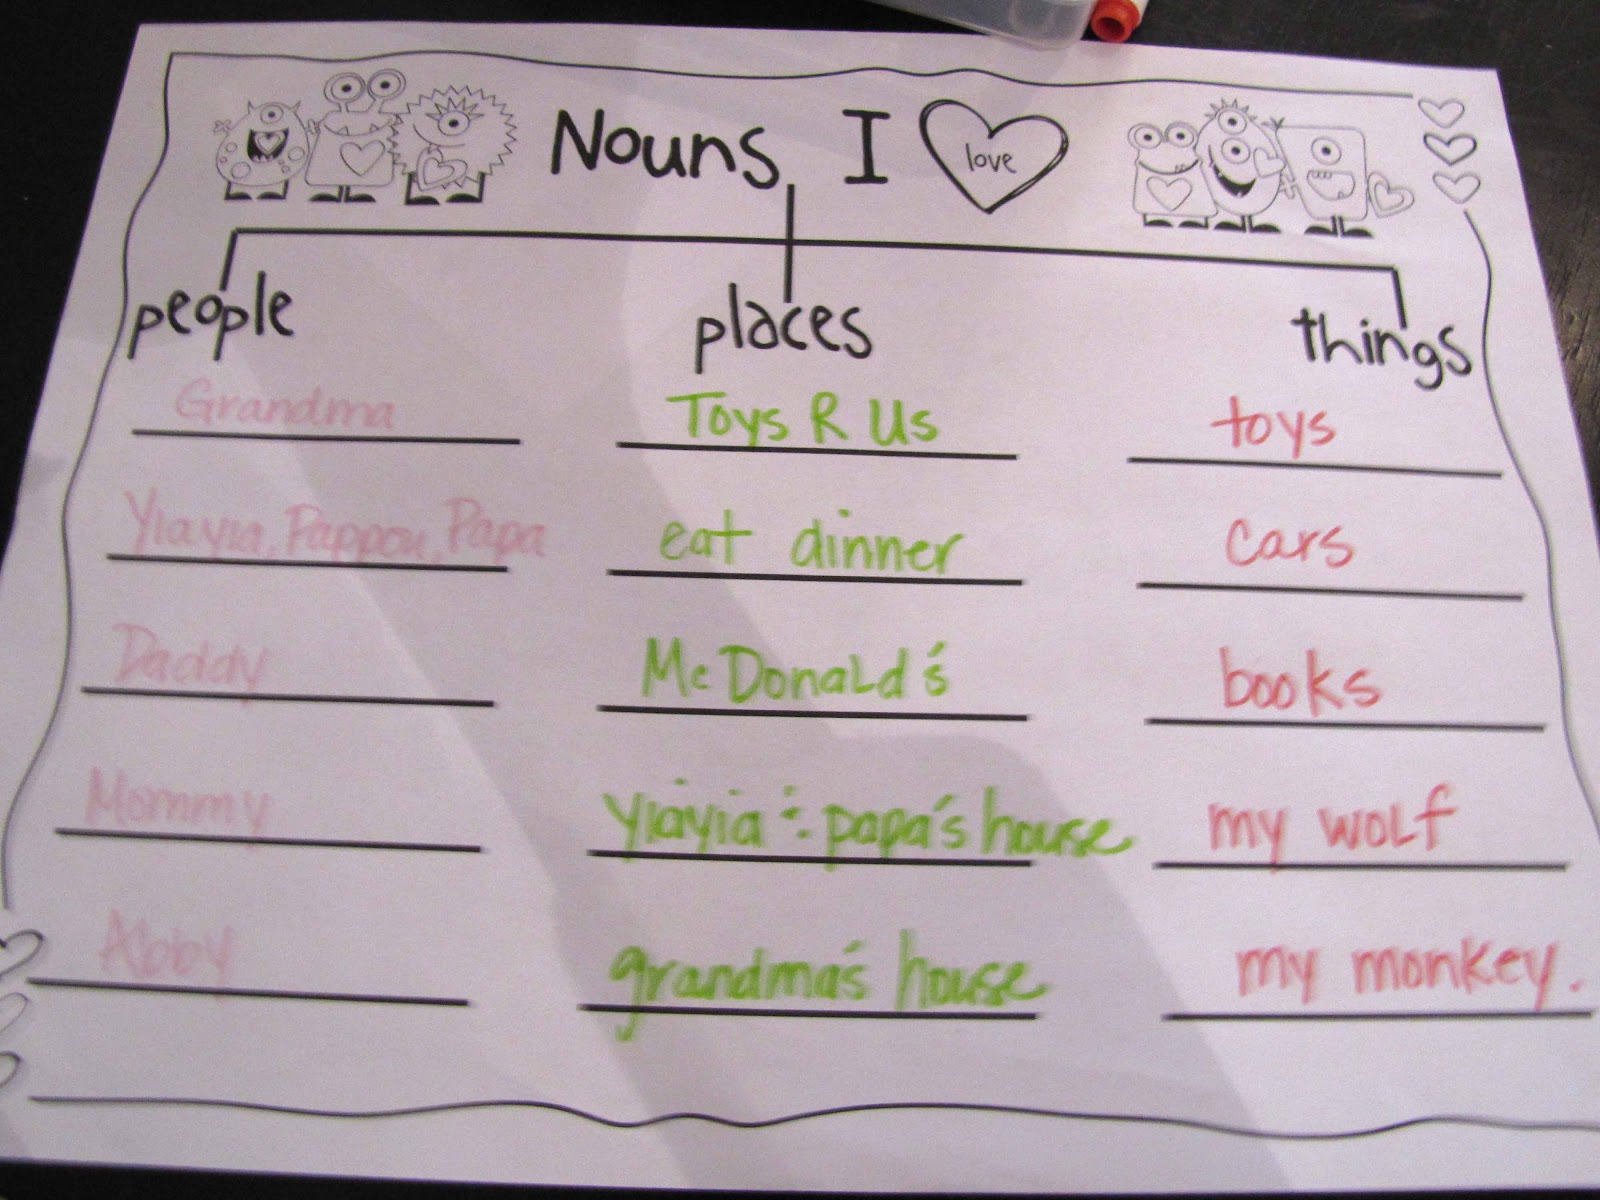 Nouns I love
people places things
Grandma Toys R Us toys
Yiayia, Pappou, Papa eat dinner cars
Daddy McDonald's books
Mommy yiayia & papa's house my wolf
Abby grandma's house my monkey.